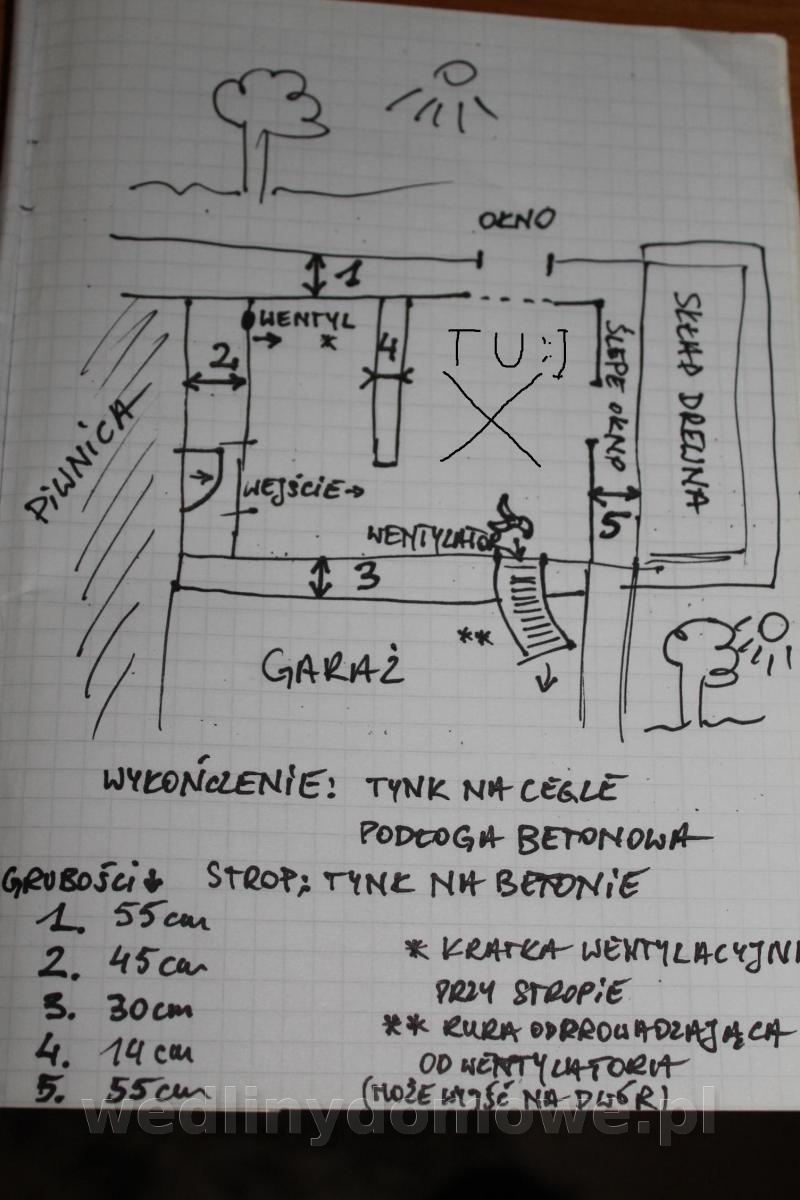 OKNO
1
WENTYL
*
2
4
TU :]
ŚLEPE OKNO
SKŁAD DREWNA
PIWNICA
WEJŚCIE
5
WENTYLATOR
3
**
GARAŻ
WYKOŃCZENIE: TYNK NA CEGLE
PODŁOGA BETONOWA
GRUBOŚCI STROP: TYNK NA BETONIE
1. 55cm
2. 45cm
* KRATKA WENTYLACYJN
PRZY STROPIE
3. 30cm
** RURA ODPROWADZAJĄCA
4. 14cm
OD WENTYLATORA
5. 55cm
(MOŻE WYJŚĆ NA DWÓR)
wedlinydomowe.pl